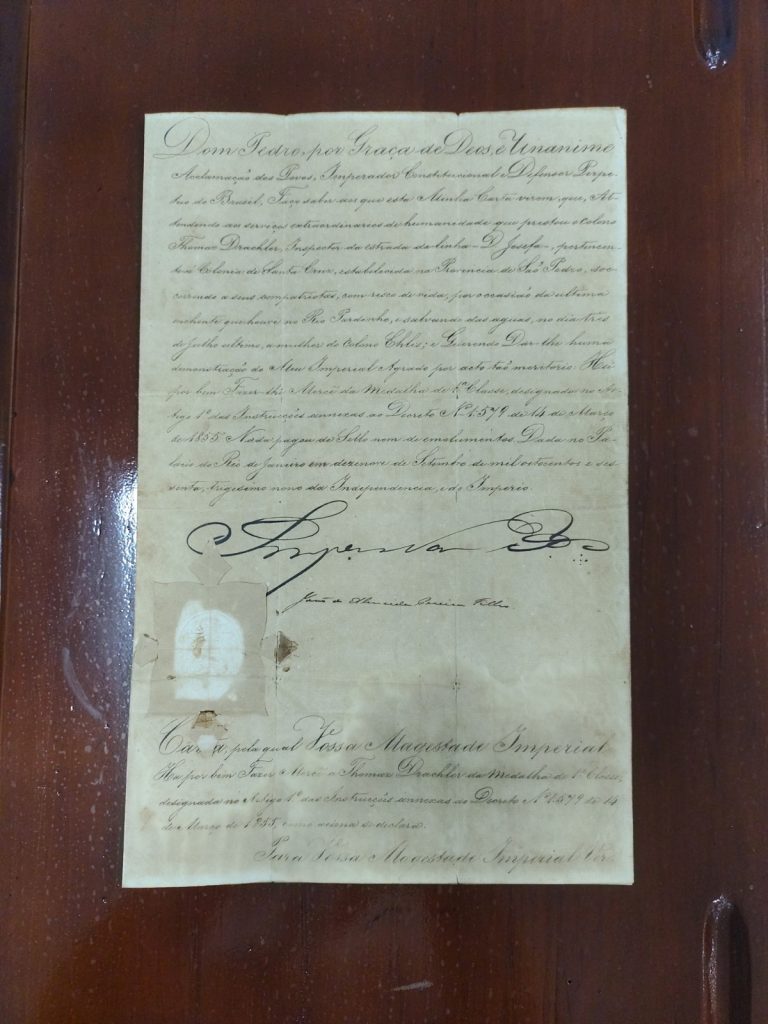 Dom Pedro, por Graça de Deos, e Unanime
Acclamação dos Povos, Imperador Constitucional e Defensor Perpe-
tuo do Brasil, Faço saber aos que esta Minha Carta virem, que, At-
tendendo aos serviços extraordinarios de humanidade que prestou o Colono
Thomaz Drachler, Inspector da Estrada de linha - D. Josefa -, pertencen-
te a Colonia de Santa Cruz, estabelecida na Provincia de São Pedro, soc-
correndo a seus compatriotas, com risco de vida, por occasião da ultima
enchente que houve no Rio Pardinho, e salvando das aguas, no dia tres
de Julho ultimo, a mulher do Colono Ehlis; e Querendo Dar-lhe huma
demonstração do Meu Imperial Agrado por acto tão meritorio: Hei
por bem Fazer-lhe Mercê da Medalha de 1ª Classe, designada no Ar-
tigo 1º das Instrucções annexas ao Decreto Nº 1.579 de 14 de Março
de 1855. Nada pagou de Sello nem de emolumentos. Dada no Pa-
lacio do Rio de Janeiro em dezenove de Setembro de mil oitocentos e ses-
senta, trigesimo nono da Independencia, e do Imperio.
Imperador
João de Almeida Pereira Filho
Carta, pela qual Vossa Magestade Imperial
Ha por bem Fazer Mercê a Thomaz Drachler da Medalha de 1ª Classe,
designada no Artigo 1º das Instrucções annexas ao Decreto Nº 1.579 de 14
de Março de 1855, como acima se declara.
Para Vossa Magestade Imperial Ver